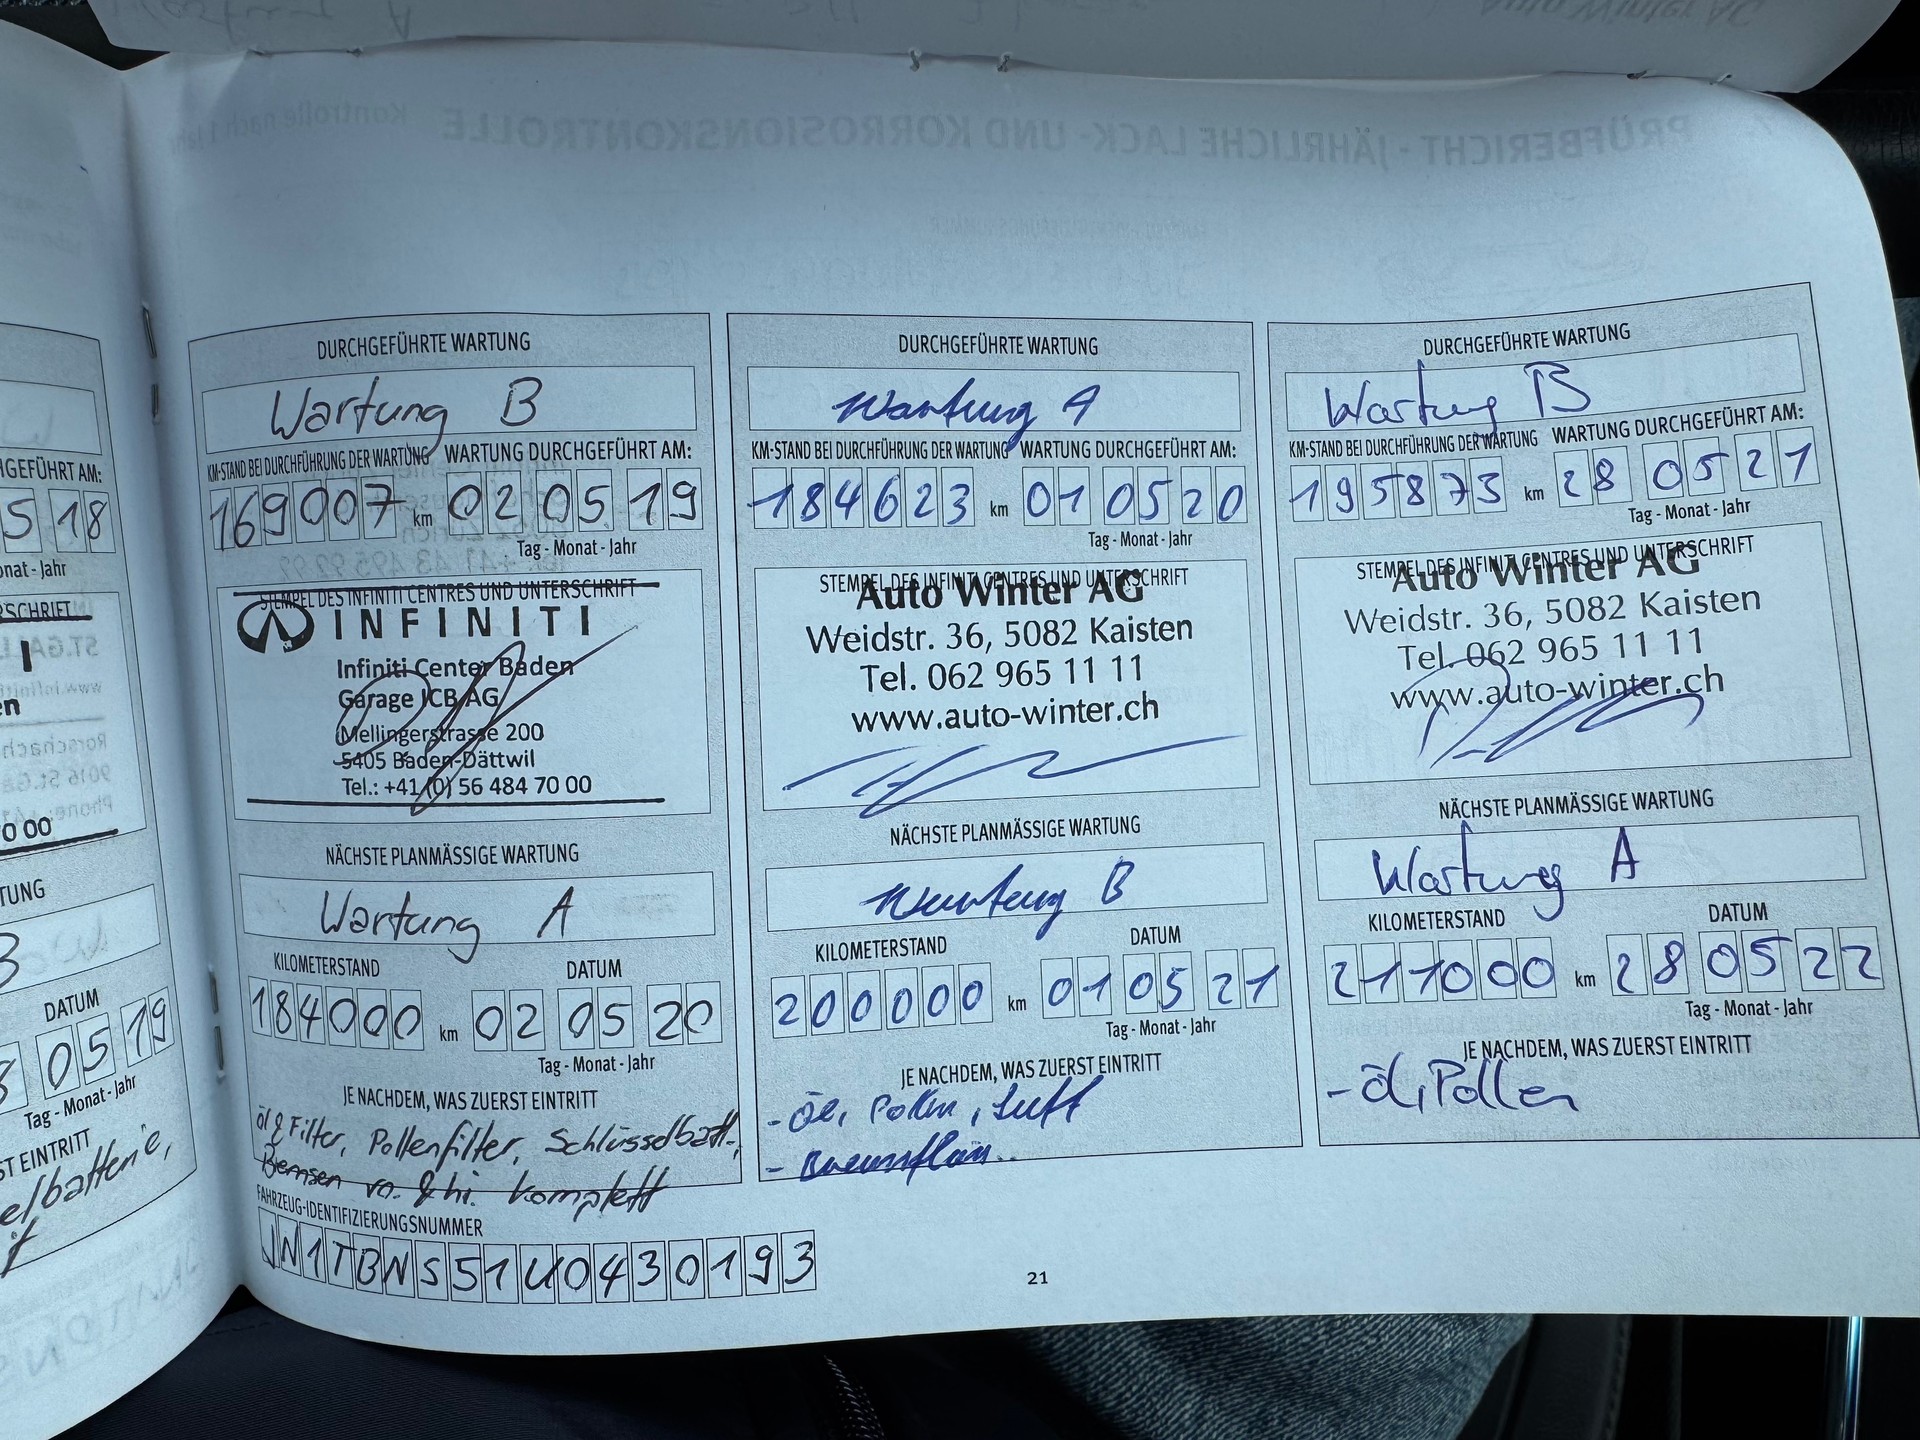 DURCHGEFÜHRTE WARTUNG
Wartung B
KM-STAND BEI DURCHFÜHRUNG DER WARTUNG WARTUNG DURCHGEFÜHRT AM:
169007 km 02 05 19
Tag - Monat - Jahr
STEMPEL DES INFINITI CENTRES UND UNTERSCHRIFT
INFINITI
Infiniti Center Baden
Garage ICB AG
Mellingerstrasse 200
5405 Baden-Dättwil
Tel.: +41 (0) 56 484 70 00
NÄCHSTE PLANMÄSSIGE WARTUNG
Wartung A
KILOMETERSTAND DATUM
184000 km 02 05 20
Tag - Monat - Jahr
JE NACHDEM, WAS ZUERST EINTRITT
Öl & Filter, Pollenfilter, Schlüsselbatt.,
Bremsen vo. & hi. komplett
FAHRZEUG-IDENTIFIZIERUNGSNUMMER
JN1TBNS51U0430193
DURCHGEFÜHRTE WARTUNG
Wartung A
KM-STAND BEI DURCHFÜHRUNG DER WARTUNG WARTUNG DURCHGEFÜHRT AM:
184623 km 01 05 20
Tag - Monat - Jahr
STEMPEL DES INFINITI CENTRES UND UNTERSCHRIFT
Auto Winter AG
Weidstr. 36, 5082 Kaisten
Tel. 062 965 11 11
www.auto-winter.ch
NÄCHSTE PLANMÄSSIGE WARTUNG
Wartung B
KILOMETERSTAND DATUM
200000 km 01 05 21
Tag - Monat - Jahr
JE NACHDEM, WAS ZUERST EINTRITT
- Öl, Pollen, Luft
DURCHGEFÜHRTE WARTUNG
Wartung B
KM-STAND BEI DURCHFÜHRUNG DER WARTUNG WARTUNG DURCHGEFÜHRT AM:
195873 km 28 05 21
Tag - Monat - Jahr
STEMPEL DES INFINITI CENTRES UND UNTERSCHRIFT
Auto Winter AG
Weidstr. 36, 5082 Kaisten
Tel. 062 965 11 11
www.auto-winter.ch
NÄCHSTE PLANMÄSSIGE WARTUNG
Wartung A
KILOMETERSTAND DATUM
211000 km 28 05 22
Tag - Monat - Jahr
JE NACHDEM, WAS ZUERST EINTRITT
- Öl, Pollen
21